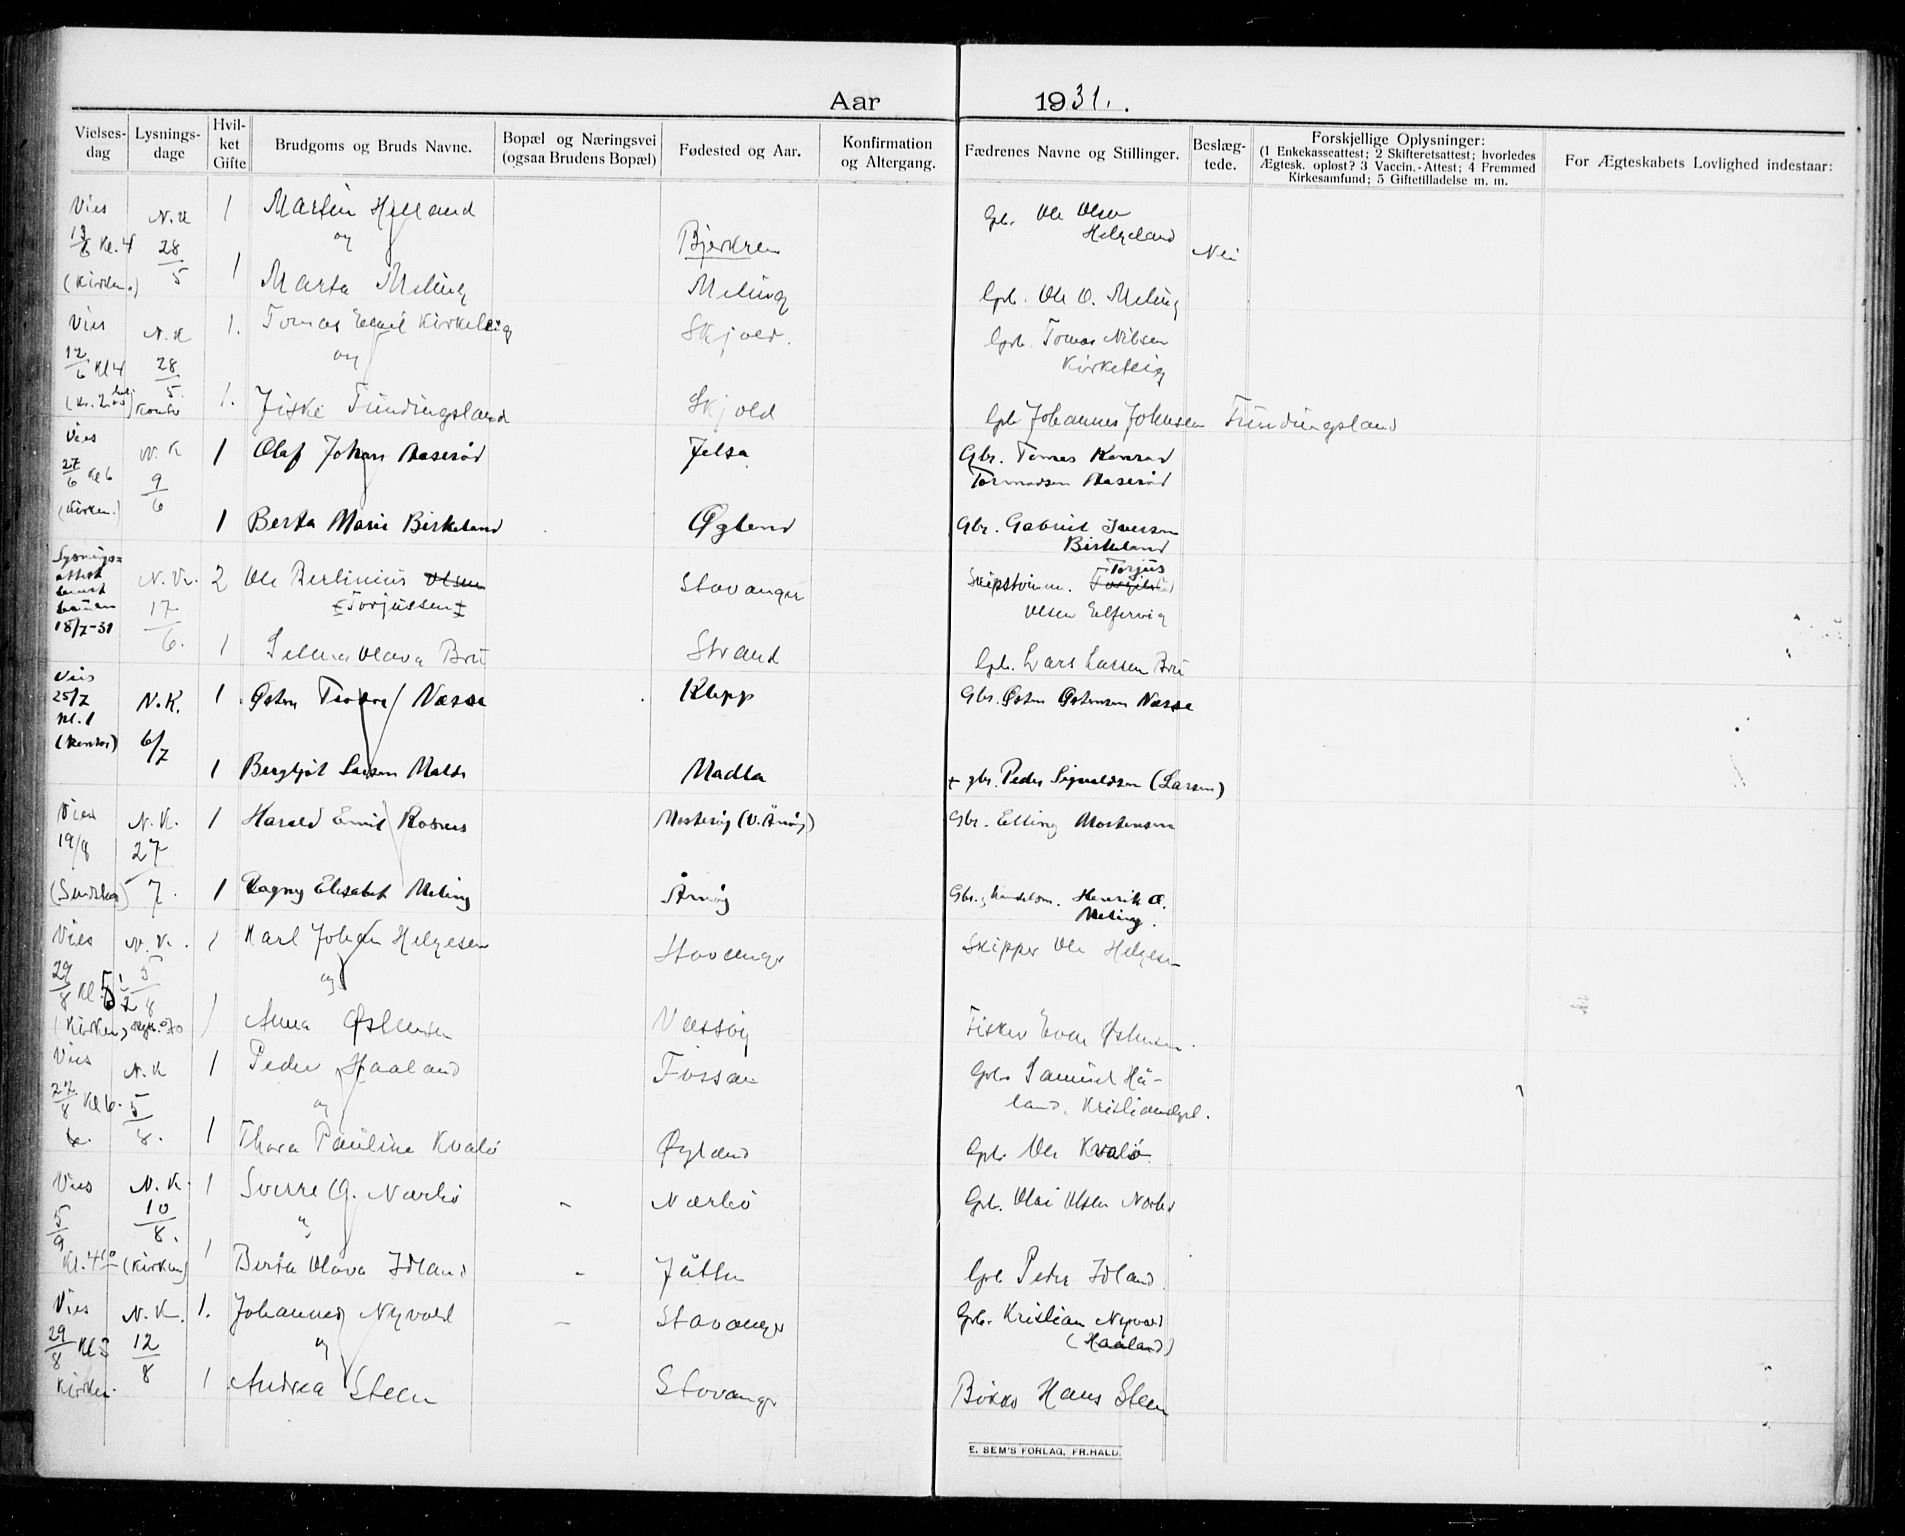 Aar 1931.
Vielses-dag
Lysnings-dage
Hvil-ket Gifte
Brudgoms og Bruds Navne.
Bopæl og Næringsvei (ogsaa Brudens Bopæl)
Fødested og Aar.
Konfirmation og Altergang.
Fædrenes Navne og Stillinger.
Beslæg-tede.
Forskjellige Oplysninger:
(1 Enkekasseattest; 2 Skifteretsattest; hvorledes
Ægtesk. opløst? 3 Vaccin.-Attest; 4 Fremmed
Kirkesamfund; 5 Giftetilladelse m. m.
For Ægteskabets Lovlighed indestaar:
Vies N.K 1 Martin Helland Gbr. Ole Olsen
13/6 Kl. 4 28/5 og Bjerkrem Helgeland Nei
(Kirken) 1 Marta Meling Meling Gbr. Ole O. Meling
Vies N.K 1. Tomas Emil Kirkeleig Skjold. Gbr. Tomas Nilsen
12/6 Kl 4 28/5. og Kirkeleig
Kontor 1. Fundingsland Skjold Gbr Johannes Johnsen Fundingsland
Vies N.K 1 Olaf Johan Aaserød Jelsa Gbr. Tomas Konrad
27/6 Kl 6 9/6 Aaserød
(Kirken.) 1 Berta Marie Birkeland Øglend Gbr. Gabriel Iversen
Birkeland
Lysnings-attest
N.K. 2 Ole Berlinius Olsen Stavanger Torjus
18/7-31 17/6. Torjussen Olsen
1 Selma Olava Brü Strand Gbr. Lars Larsen Brü
Vies 25/7 N.K. 1 Østen Næsse Klepp Gbr. Østen Østensen Næsse
kl. 1 (kontor) 6/7
1 Bergljot Larsen Malde Madla + gbr. Peder Sigvaldsen (Larsen)
Vies N.K. 1 Harald Emil Rosnes Mosterøy (V. Åmøy) Gbr. Elling Mortensen
19/8 27/7.
1 Ragny Elisabet Meling Åmøy Gbr. Henrik O.
Meling.
Vies N.K. 1 Karl Johan Helgesen Stavanger Skipper Ole Helgesen
29/8 Kl. 5 1/2 5/8 og
(Kirken) 1 Anna Østensen Væssøy Fisker Østensen.
Vies N.K 1 Peder Haaland Fossan Gbr Samuel Hå-
22/8 Kl 6. 5/8. og land, Kristiandspl.
1 Thora Pauline Kvalø Øgland Gbr. Ole Kvalø
Vies N.K. 1 Sverre O. Nærbø - Nærbø Gbr. Olai Olsen Nærbø
5/9 10/8.
Kl. 4 (Kirken) 1 Berta Olava Idland - Jåtten Gbr Peder Idland.
Vies N.K. 1. Johannes Nyvold - Stavanger Gbr. Kristian Nyvold
29/8 Kl 3 12/8 og (Haaland)
Kirken. 1 Andrea Steen Stavanger Hans Steen
E. SEM'S FORLAG, FR.HALD.